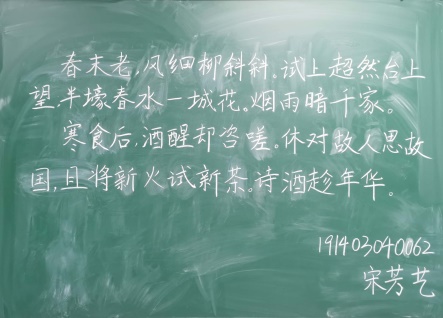 春未老，风细柳斜斜。试上超然台上
望，半壕春水一城花。烟雨暗千家。
寒食后，酒醒却咨嗟。休对故人思故
国，且将新火试新茶。诗酒趁年华。
191403040062
宋芳艺